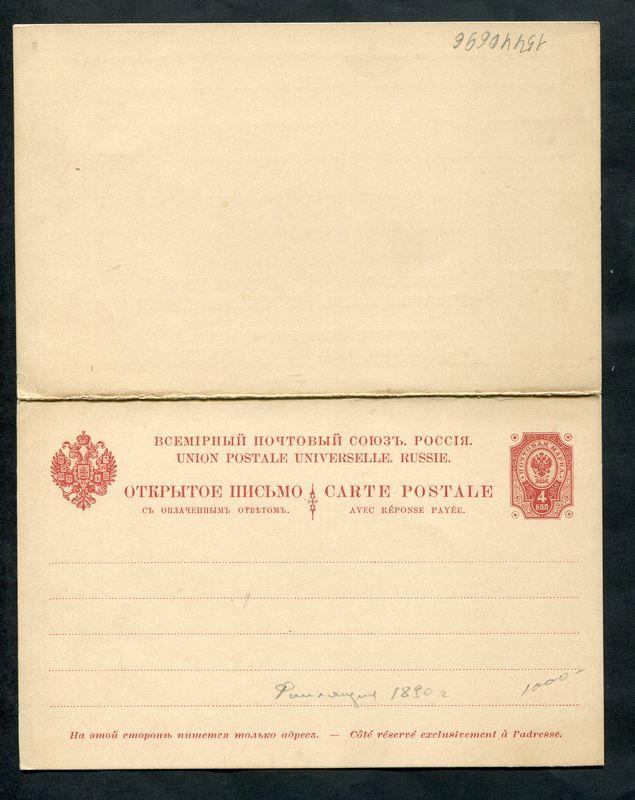 15440696
ВСЕМІРНЫЙ ПОЧТОВЫЙ СОЮЗЪ. РОССІЯ.
UNION POSTALE UNIVERSELLE. RUSSIE.
ОТКРЫТОЕ ПИСЬМО CARTE POSTALE
СЪ ОПЛАЧЕННЫМЪ ОТВѢТОМЪ. AVEC RÉPONSE PAYÉE.
ПОЧТОВАЯ МАРКА
4
КОП
1890 г
1000-
На этой сторонѣ пишется только адресъ. — Côté réservé exclusivement à l'adresse.